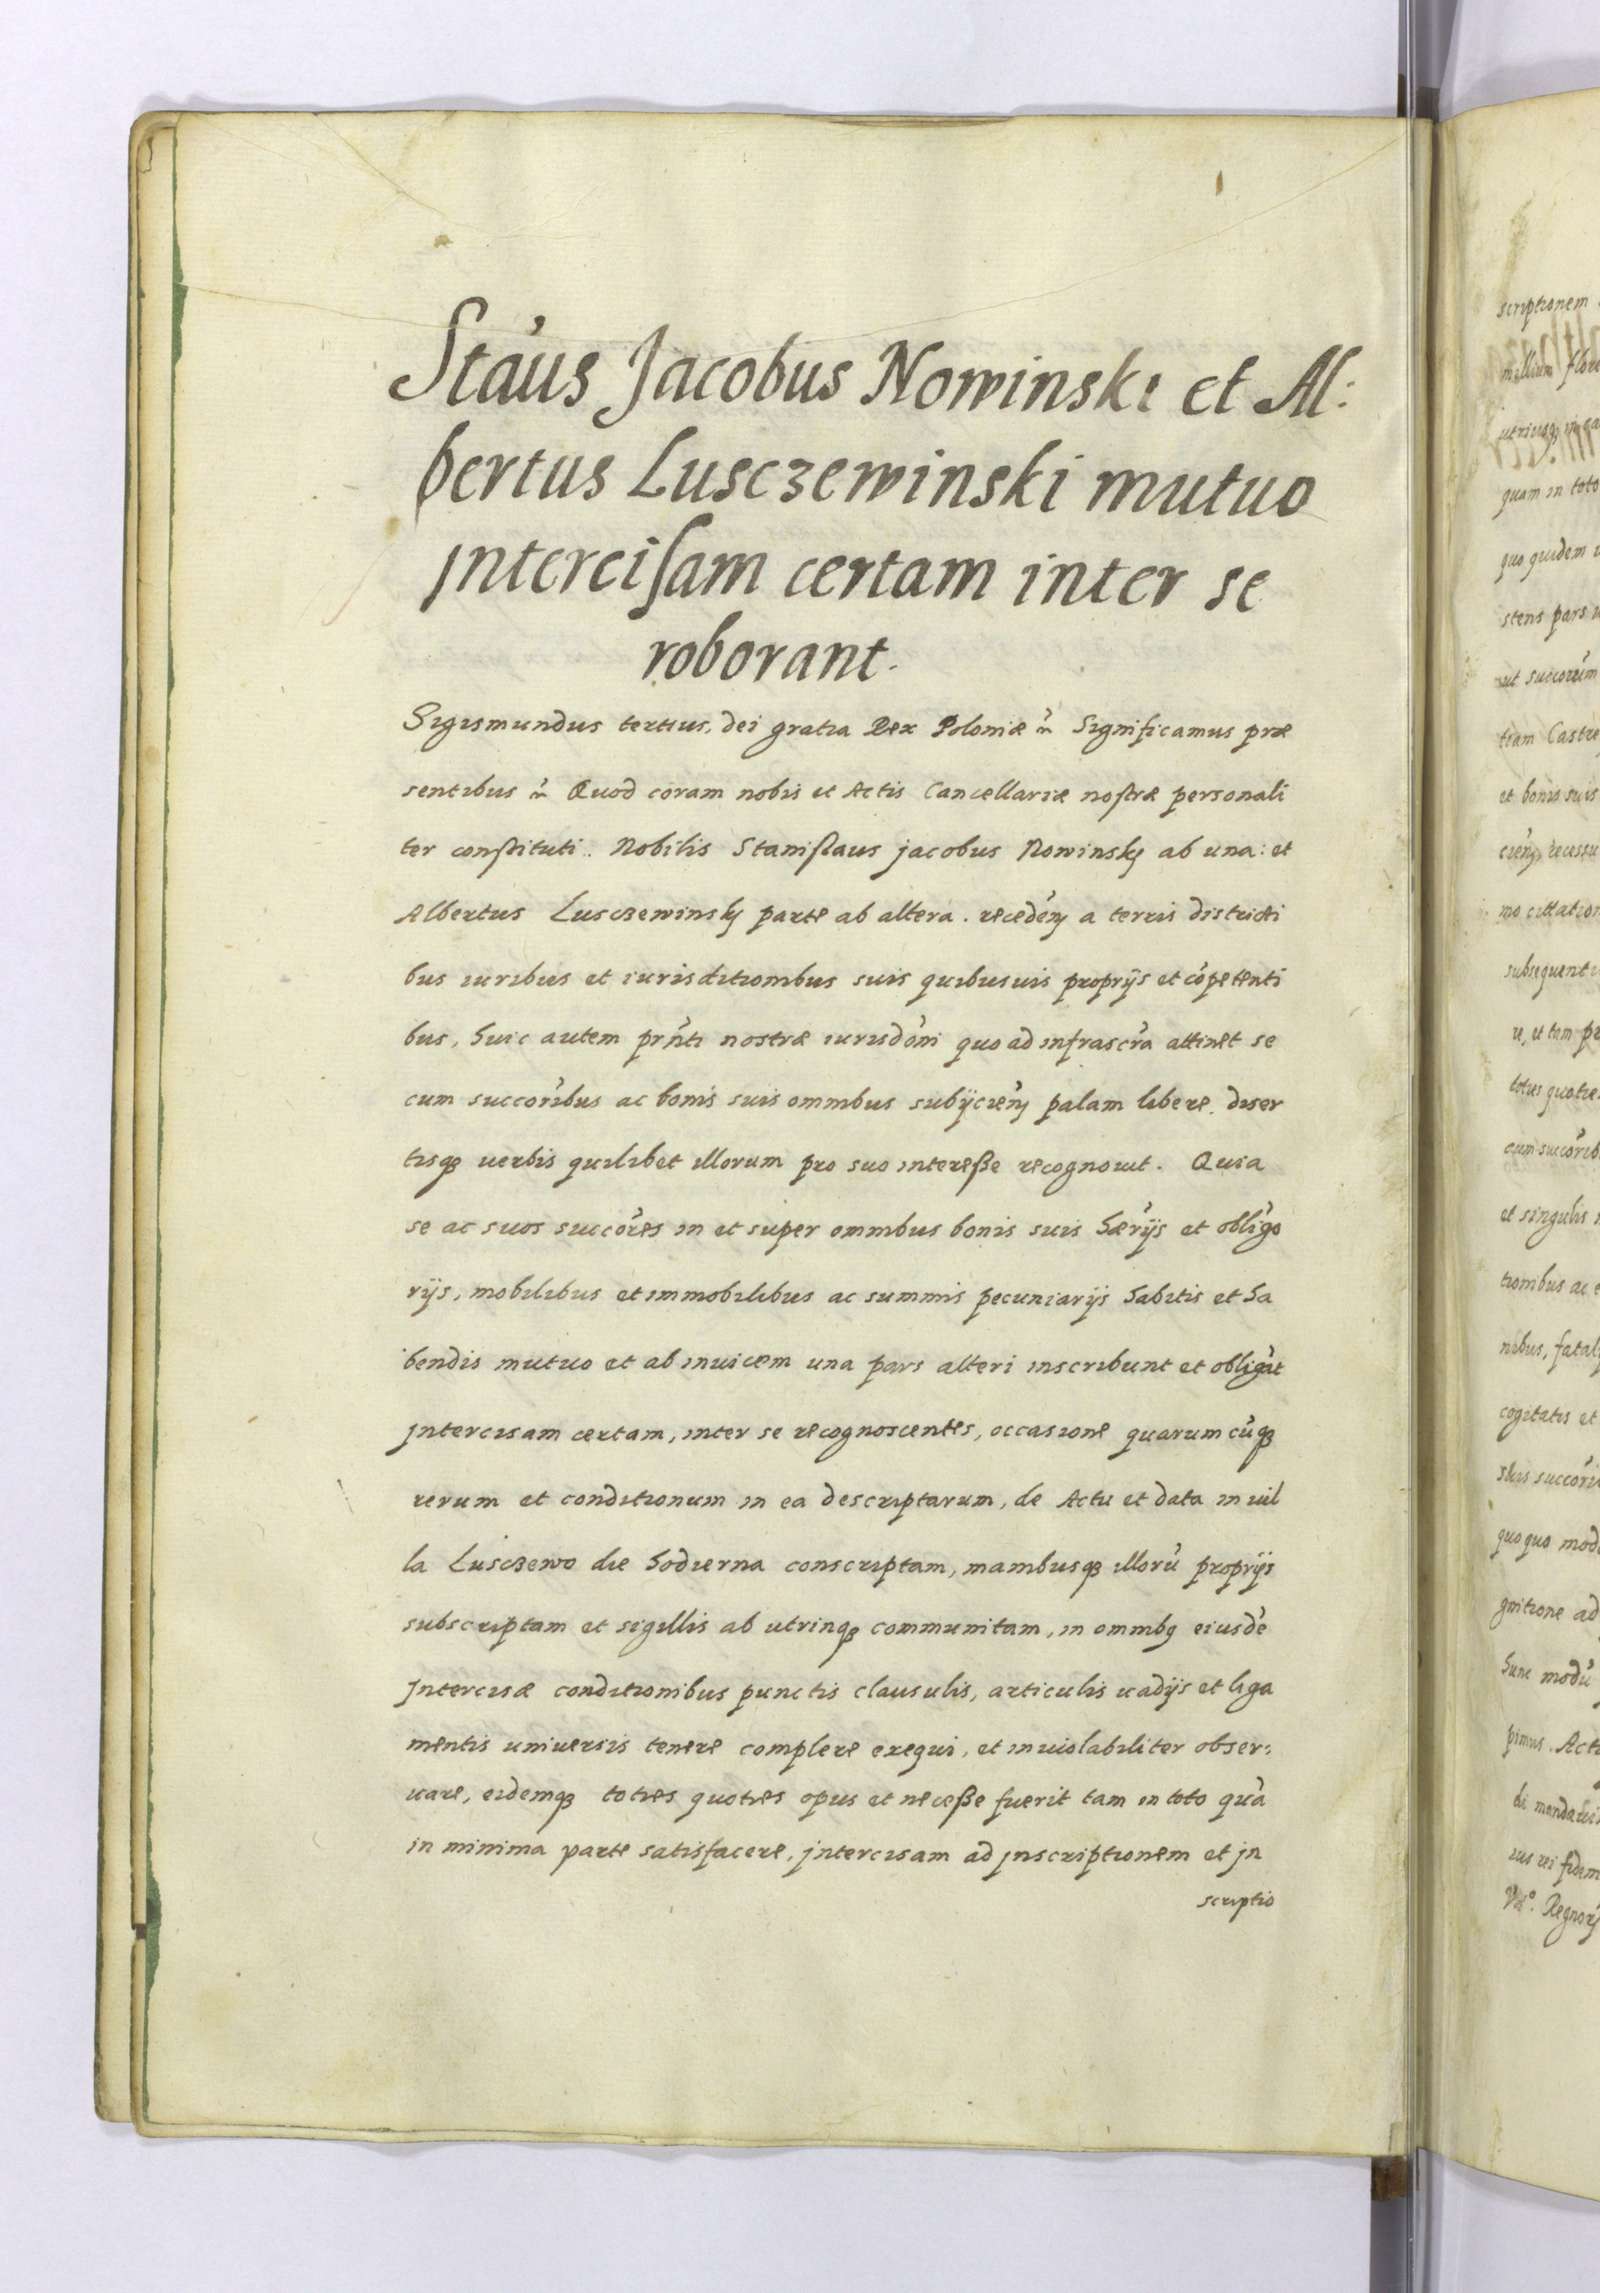 Sta͗us Jacobus Nowinski et Al:
bertus Lusczewinski mutuo
jntercisam certam inter se
roborant.
Sigismundus tertius, dei gratia Rex Poloniæ Significamus præ
sentibus Quod coram nobis et Actis Cancellariæ nostræ personali
ter constituti. Nobilis Stanislaus jacobus Nowinskj ab una: et
Albertus Lusczewinskj parte ab altera. recedén a terris districti
bus iuribus et iurisditionibus suis quibusuis proprijs et cópetenti
bus, huic autem prńti nostræ iurisdóni quo ad infrascŕa attinet se
cum succoŕibus ac bonis suis omnibus subijcień palam libere, diser
tisqȝ uerbis quilibet illorum pro suo interesse recognouit. Quia
se ac suos succóres in et super omnibus bonis suis hæŕijs et oblígo
rijs, mobilibus et immobilibus ac summis pecuniarijs habitis et ha
bendis mutuo et ab inuicem una pars alteri inscribunt et obligát
jntercisam certam, inter se recognoscentes, occasione quarum cúqȝ
rerum et conditionum in ea descriptarum, de Actu et data in uil
la Lusczewo die hodierna conscriptam, manibusqȝ illorú proprijs
subscriptam et sigillis ab utrinqȝ communitam, in omnibꝯ eiusdé
jntercisæ conditionibus punctis clausulis, articulis uadijs et liga
mentis universis tenere complere exequi, et inuiolabiliter obser:
uare, eidemqȝ toties quoties opus et necesse fuerit tam in toto quá
in minima parte satisfacere, jntercisam ad jnscriptionem et jn
scriptio
scriptionem
quam in toto
quo quidem
stens pars
ut succorúm
tiam Castre
et bonis suis
recessu
mo citation
subsequent
toties quotie
cum succoŕib
et singulis
tionibus ac e
nibus, fatal
cogitatis et
suis succoŕi
quo quo mod
gnitione ad
hunc modú
pimus. Act
di mandau
ius rei fidem
Regnor